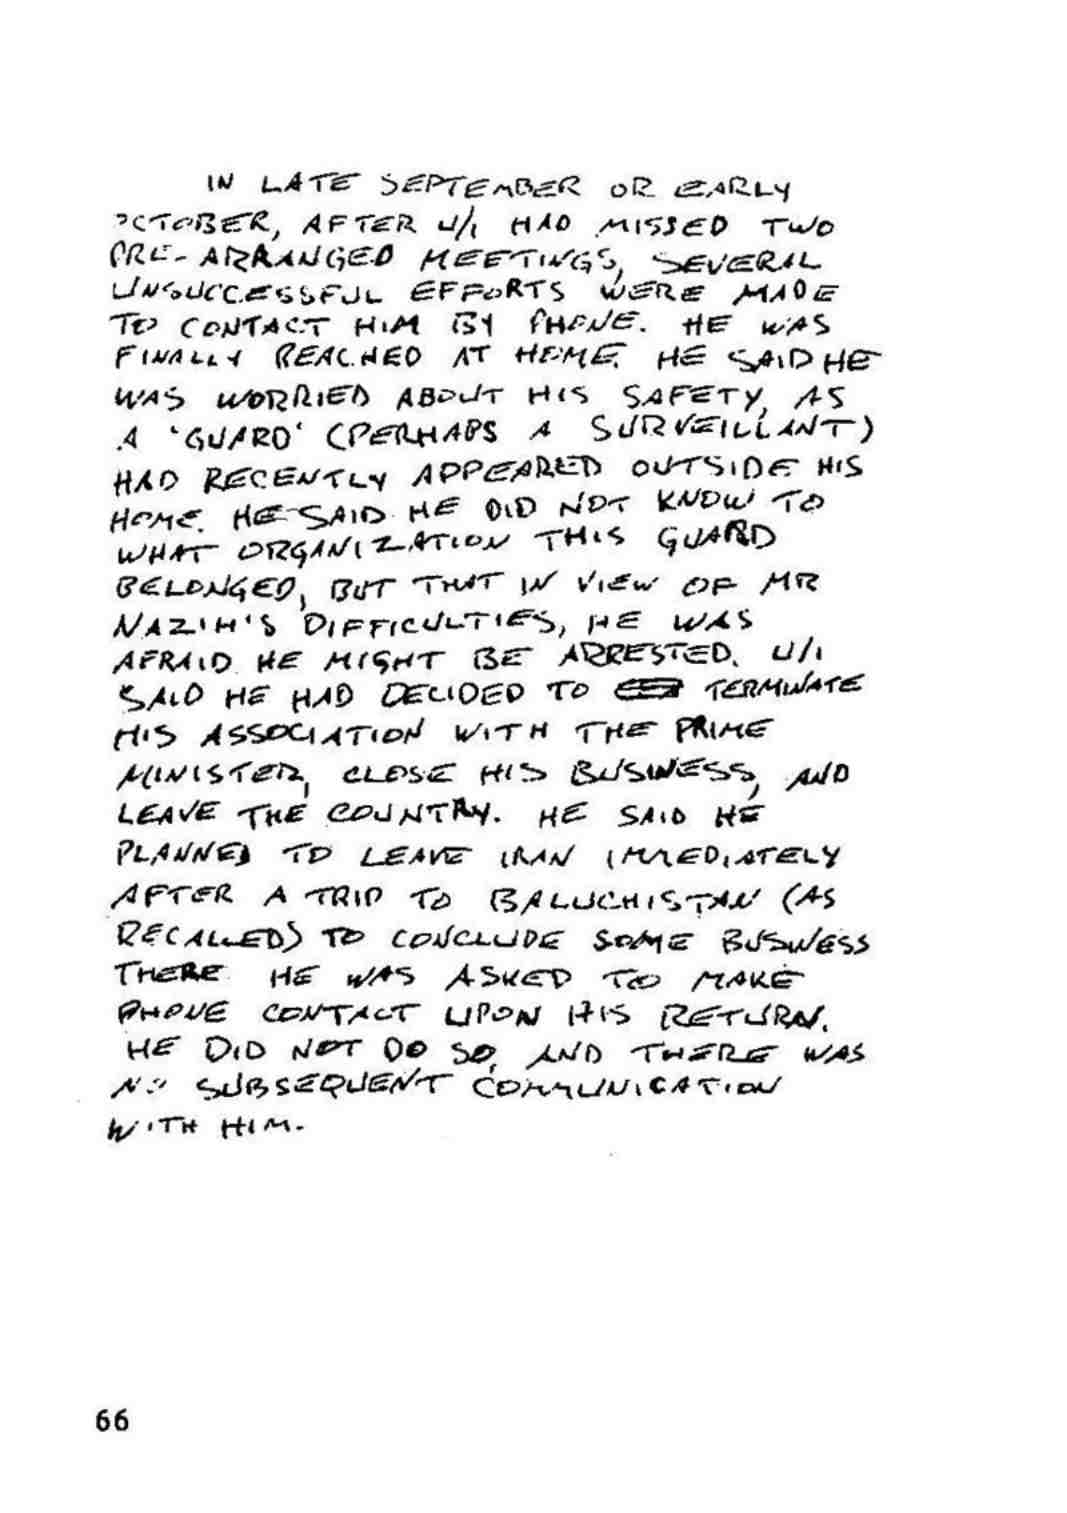 IN LATE SEPTEMBER OR EARLY
OCTOBER, AFTER U/1 HAD MISSED TWO
PRE-ARRANGED MEETINGS, SEVERAL
UNSUCCESSFUL EFFORTS WERE MADE
TO CONTACT HIM BY PHONE. HE WAS
FINALLY REACHED AT HOME. HE SAID HE
WAS WORRIED ABOUT HIS SAFETY, AS
A 'GUARD' (PERHAPS A SURVEILLANT)
HAD RECENTLY APPEARED OUTSIDE HIS
HOME. HE SAID HE DID NOT KNOW TO
WHAT ORGANIZATION THIS GUARD
BELONGED, BUT THAT IN VIEW OF MR
NAZIH'S DIFFICULTIES, HE WAS
AFRAID HE MIGHT BE ARRESTED. U/1
SAID HE HAD DECIDED TO TERMINATE
HIS ASSOCIATION WITH THE PRIME
MINISTER, CLOSE HIS BUSINESS, AND
LEAVE THE COUNTRY. HE SAID HE
PLANNED TO LEAVE IRAN IMMEDIATELY
AFTER A TRIP TO BALUCHISTAN (AS
RECALLED) TO CONCLUDE SOME BUSINESS
THERE. HE WAS ASKED TO MAKE
PHONE CONTACT UPON HIS RETURN.
HE DID NOT DO SO, AND THERE WAS
NO SUBSEQUENT COMMUNICATION
WITH HIM.
66